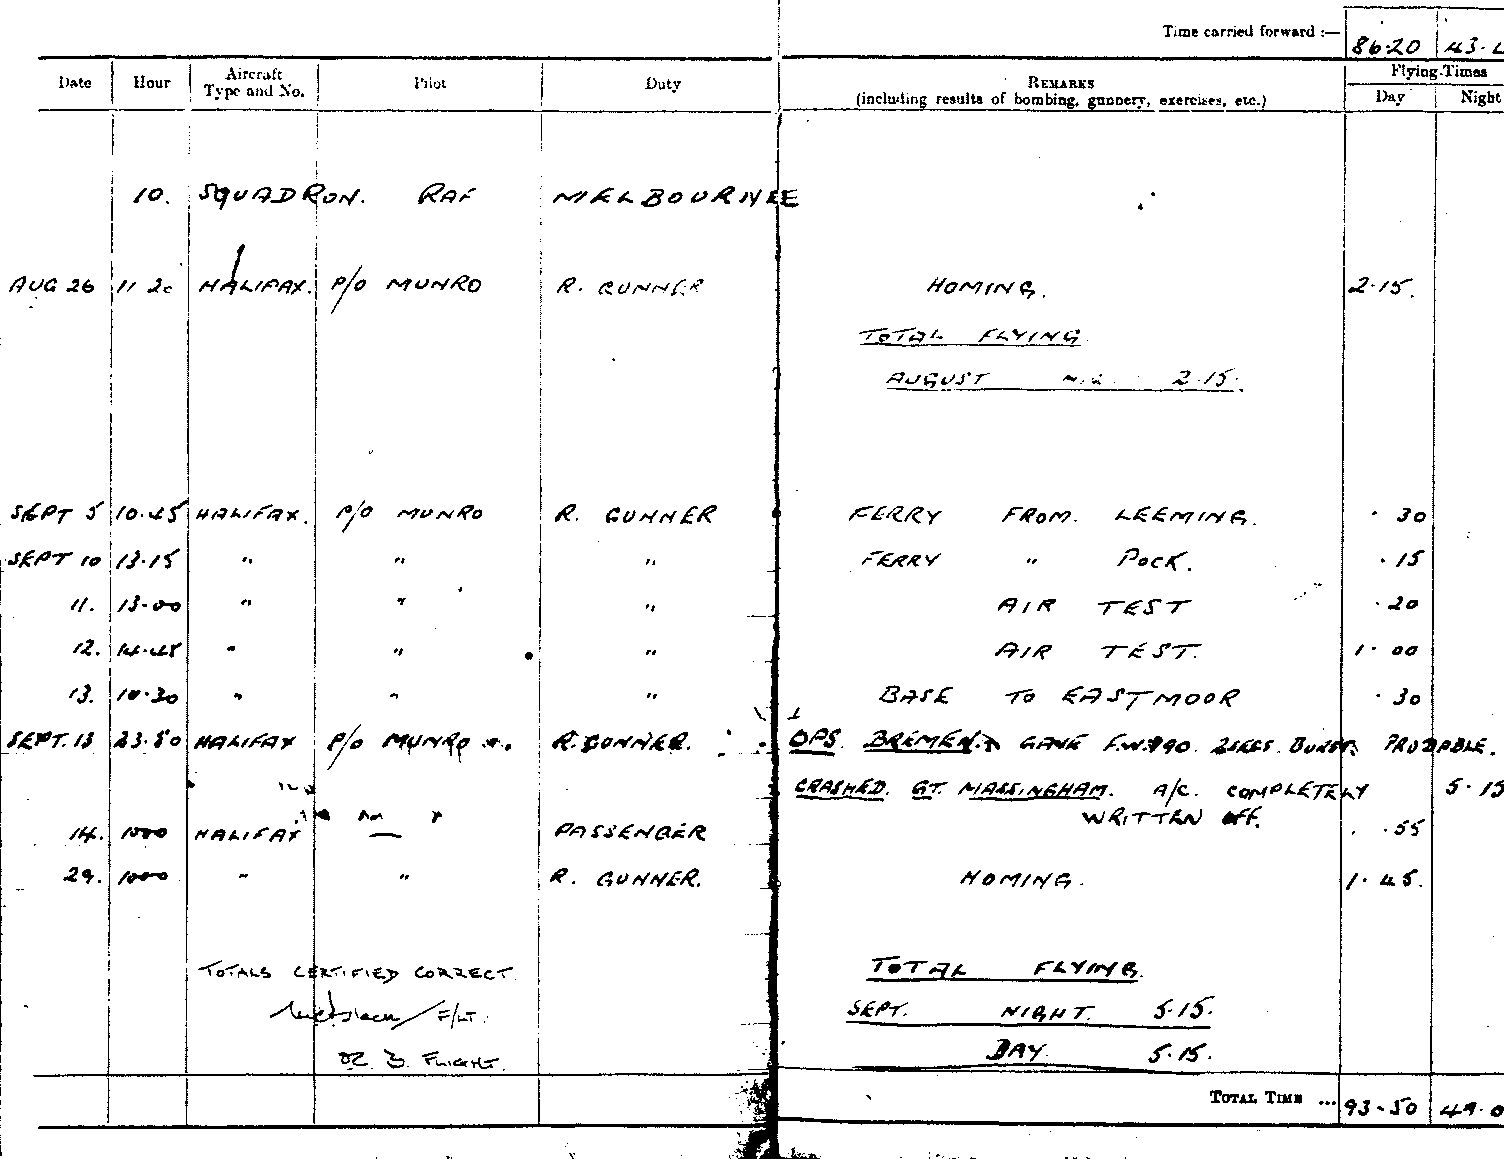 Time carried forward :— 86.20 43.
Date Hour Aircraft Type and No. Pilot Duty REMARKS (including results of bombing, gunnery, exercises, etc.) Flying Times Day Night
10. SQUADRON. RAF MELBOURNE
AUG 26 11 20 HALIFAX. P/O MUNRO R. GUNNER HOMING. 2.15.
TOTAL FLYING
AUGUST 2.15.
SEPT 5 10.45 HALIFAX. P/O MUNRO R. GUNNER FERRY FROM. LEEMING. .30
SEPT 10 13.15 " " " FERRY " POCK. .15
11. 13.00 " " " AIR TEST .20
12. 14.45 " " " AIR TEST. 1.00
13. 10.30 " " " BASE TO EASTMOOR .30
SEPT. 13 HALIFAX P/O MUNRO R. GUNNER. OPS. BREMEN. GAVE F.W.190. BURST. PROBABLE.
CRASHED. GT. MASSINGHAM. A/C. COMPLETELY 5.15
WRITTEN OFF.
14. 1000 HALIFAX — PASSENGER .55
29. 1000 " " R. GUNNER. HOMING. 1.45.
TOTALS CERTIFIED CORRECT TOTAL FLYING.
F/LT. SEPT. NIGHT. 5.15.
DAY. 5.15.
B. FLIGHT.
TOTAL TIME ... 93.50 49.0